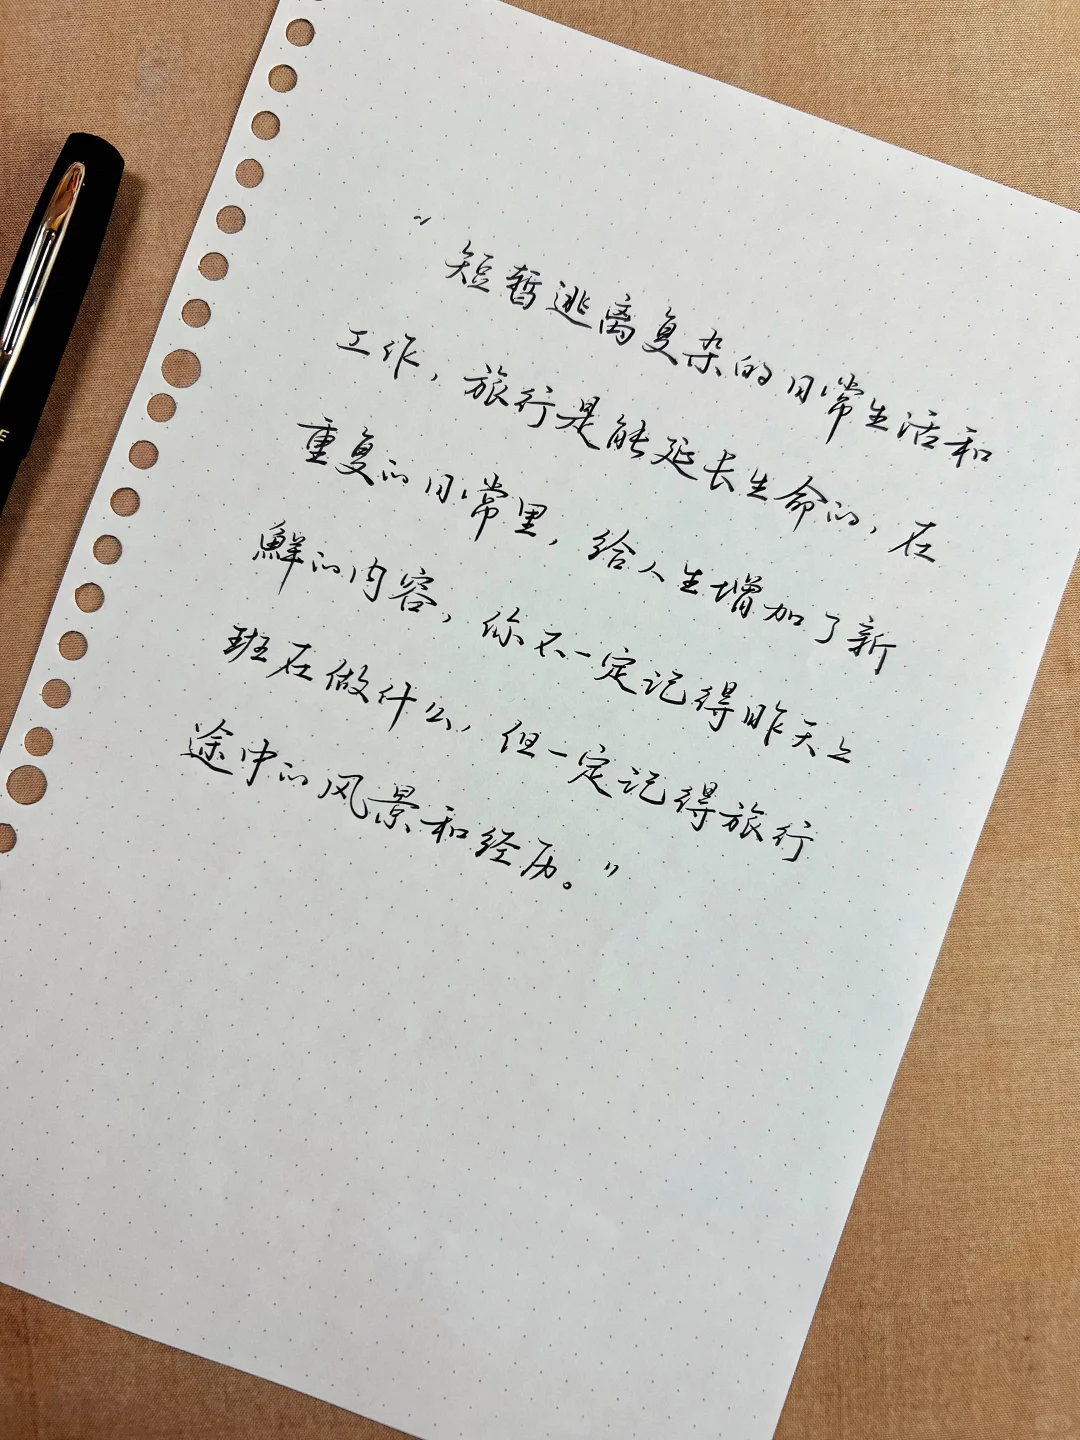 “短暂逃离复杂的日常生活和
工作，旅行是能延长生命的，在
重复的日常里，给人生增加了新
鲜的内容，你不一定记得昨天上
班在做什么，但一定记得旅行
途中的风景和经历。”
E